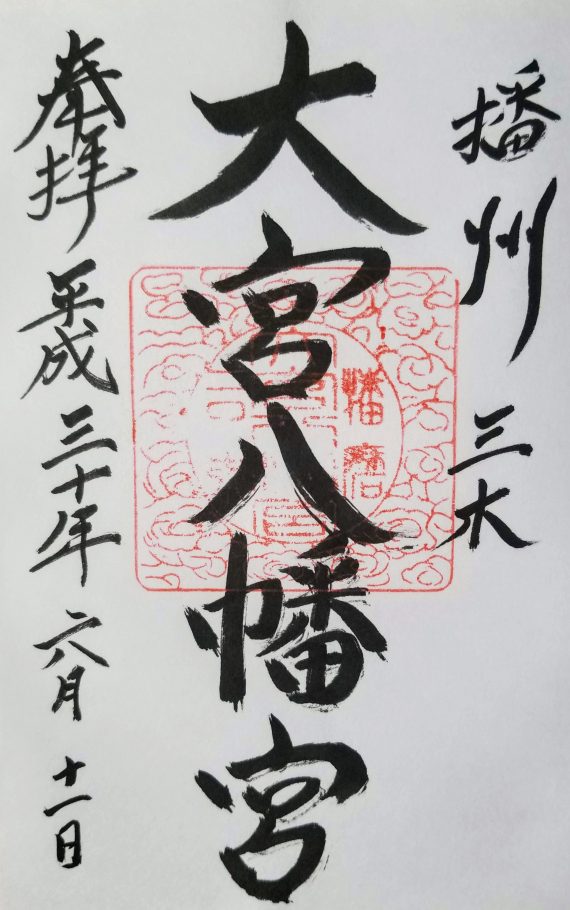 播州 三大
大宮八幡宮
奉拝 平成三十年 六月 十一日
播磨